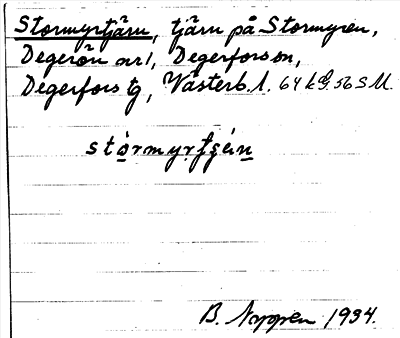 Stormyrtjärn, tjärn på Stormyren,
Degerön nr 1, Degerfors sn,
Degerfors tg, Västerb. l. 64 kg. 56 S M.
stòrmyrtʂéin
B. Norgren 1934.